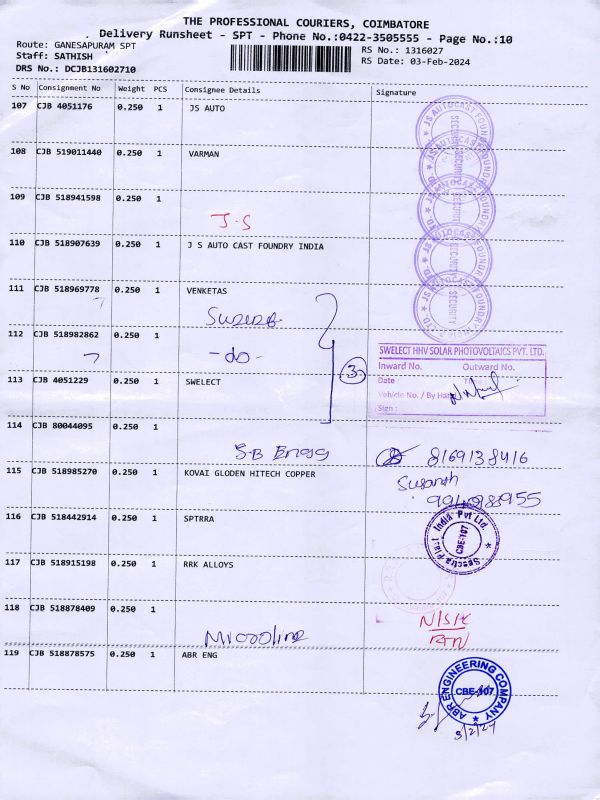 THE PROFESSIONAL COURIERS, COIMBATORE
Delivery Runsheet - SPT - Phone No.:0422-3505555 - Page No.:10
Route: GANESAPURAM SPT
Staff: SATHISH
DRS No.: DCJB131602710
RS No.: 1316027
RS Date: 03-Feb-2024
S No Consignment No Weight PCS Consignee Details Signature
107 CJB 4051176 0.250 1 JS AUTO
108 CJB 519011440 0.250 1 VARMAN
109 CJB 518941598 0.250 1
J.S
110 CJB 518907639 0.250 1 J S AUTO CAST FOUNDRY INDIA
111 CJB 518969778 0.250 1 VENKETAS
112 CJB 518982862 0.250 1 -do-
SWELECT HHV SOLAR PHOTOVOLTAICS PVT. LTD.
Inward No. Outward No.
Date
Vehicle No. / By Hand
Sign :
3
113 CJB 4051229 0.250 1 SWELECT
114 CJB 80044095 0.250 1
SB Engg 8169138416
115 CJB 518985270 0.250 1 KOVAI GLODEN HITECH COPPER
116 CJB 518442914 0.250 1 SPTRRA
India Pvt Ltd.
CBE-107
117 CJB 518915198 0.250 1 RRK ALLOYS
118 CJB 518878409 0.250 1
Microline
N/S/K
RTN
119 CJB 518878575 0.250 1 ABR ENG
ABR ENGINEERING COMPANY
CBE-107
3/2/24
JS AUTOCAST FOUNDRY
SECURITY